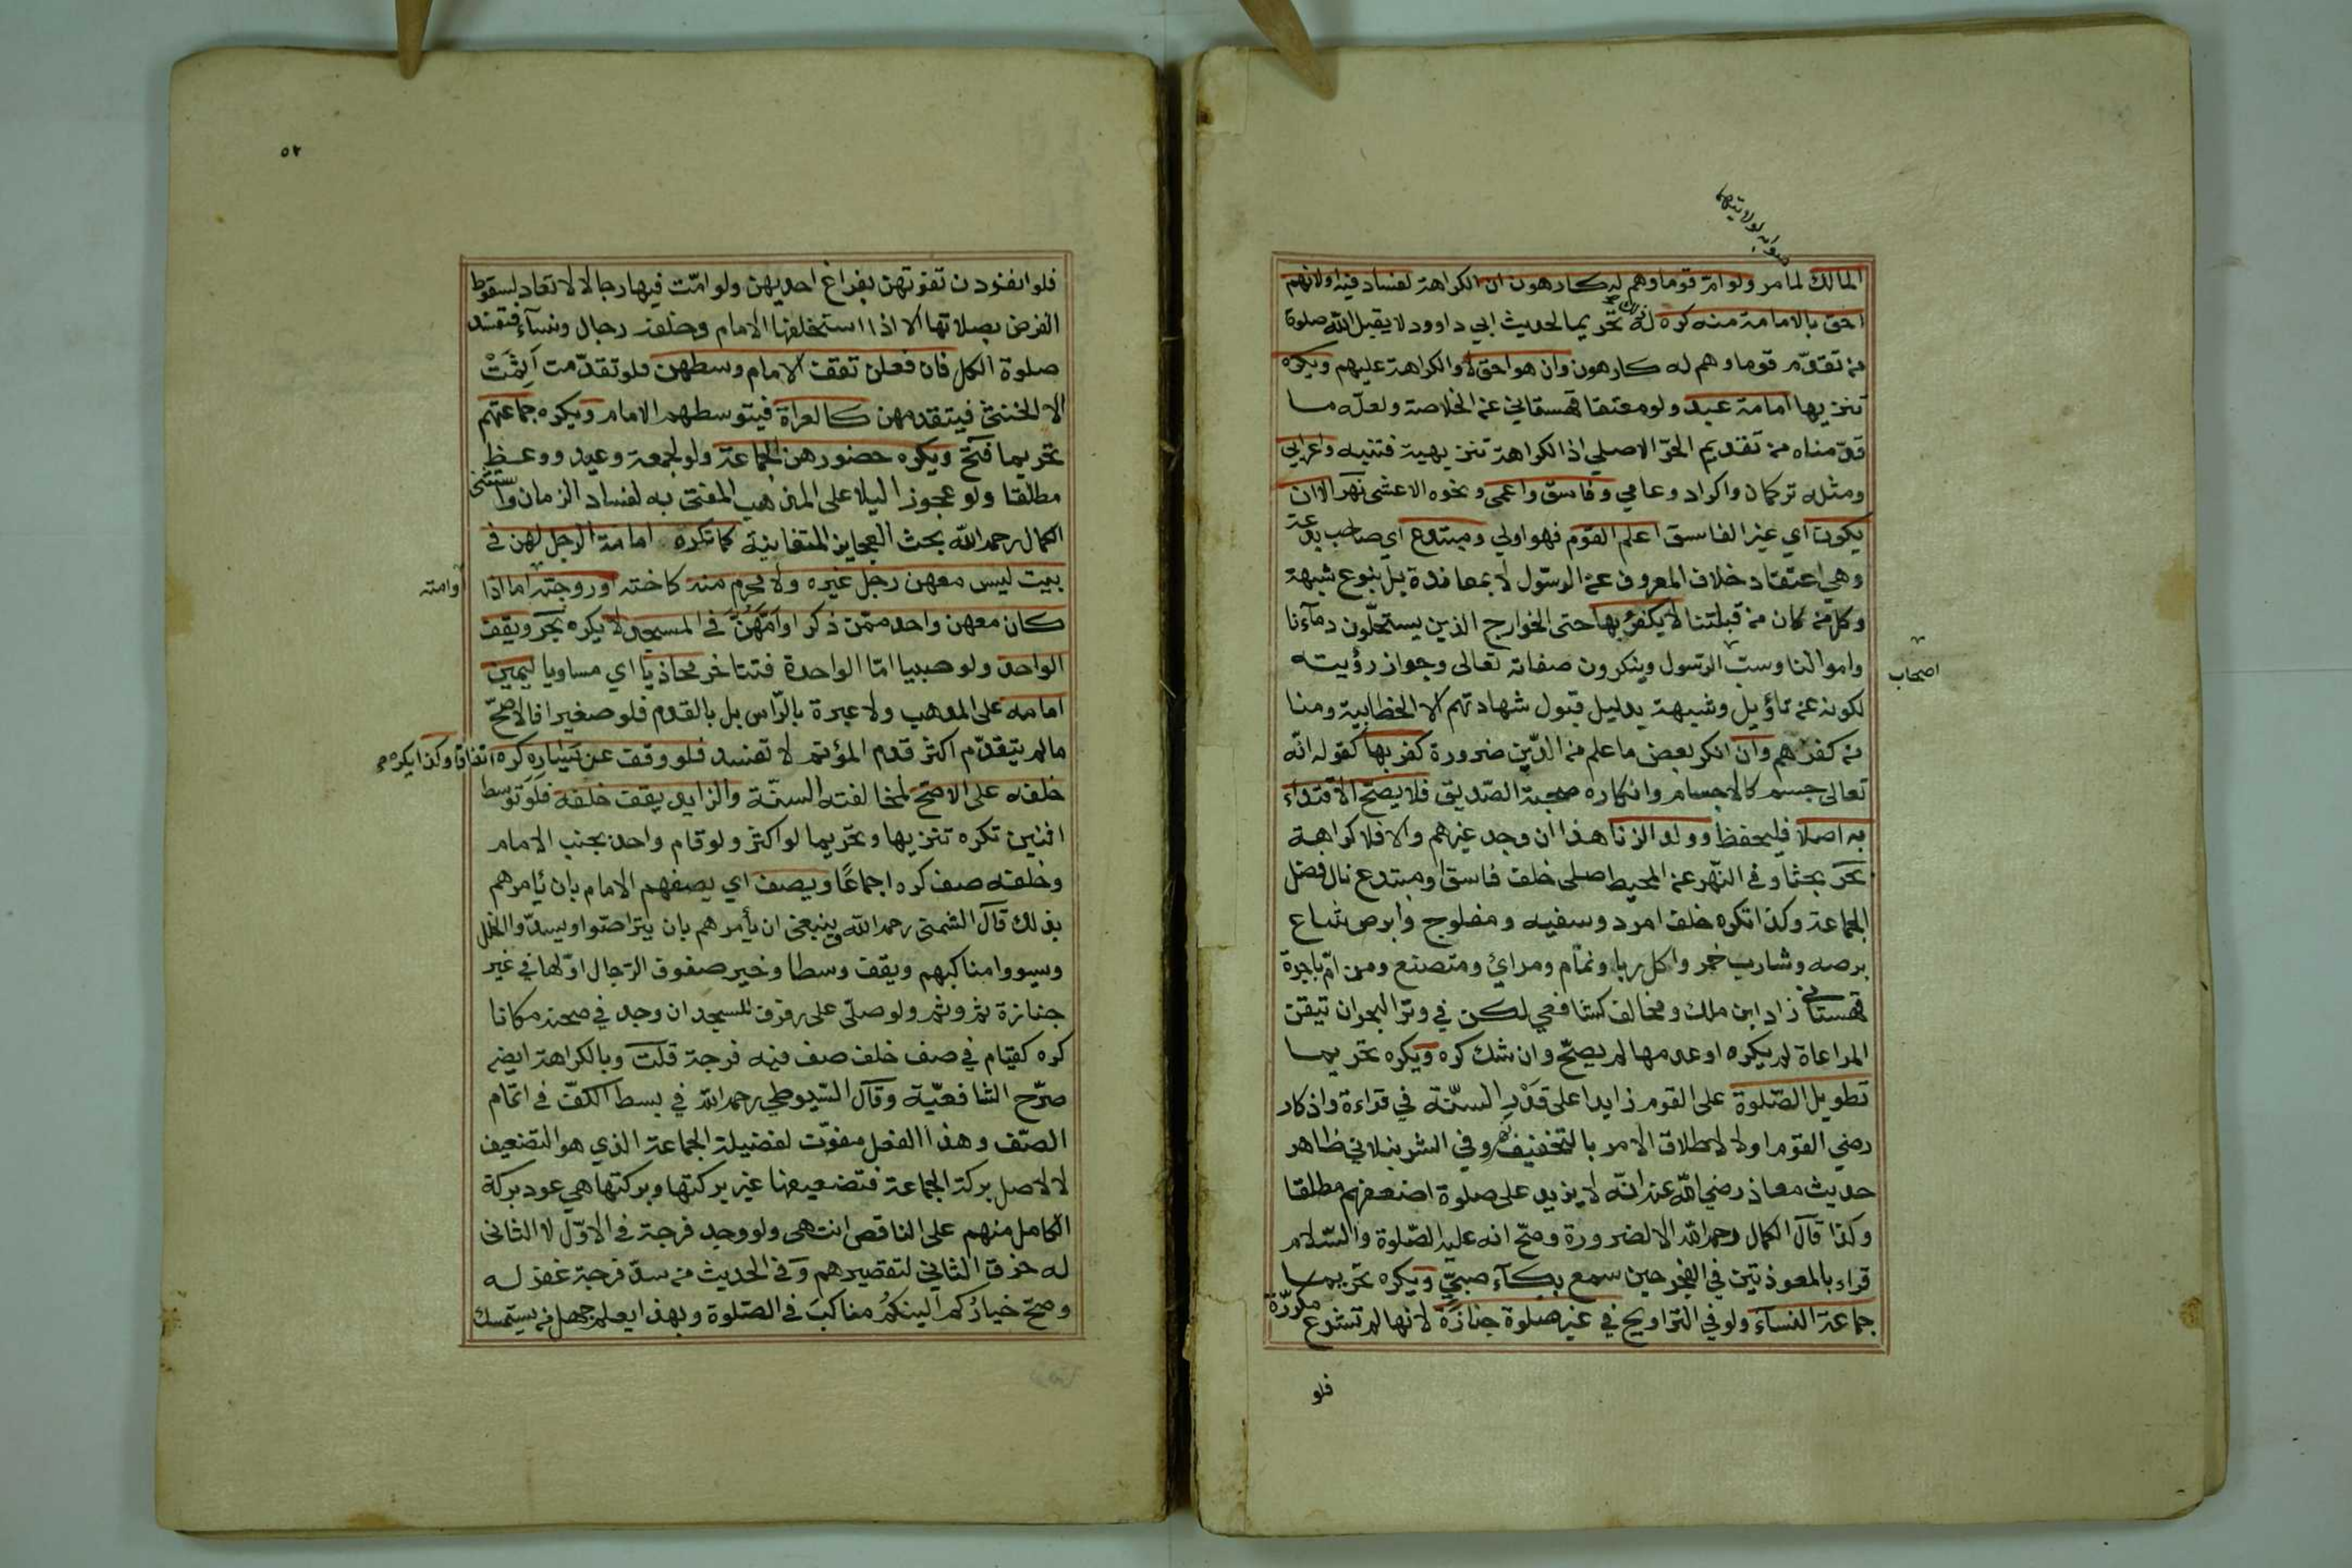 صوابه لولايتهما
المالك لما مر ولو ام قوما وهم له كارهون ان الكراهة لفساد فيه او لانهم
احق بالامامة منه كره له تحريما لحديث ابي داوود لا يقبل الله صلوة
من تقدّم قوما وهم له كارهون وان هو احق لا والكراهة عليهم ويكره
تنزيها امامة عبد ولو معتقا قهستاني عن الخلاصة ولعلّه لما
قدّمناه من تقديم الحرّ الاصلي اذ الكراهة تنزيهية فتنبه واعرابي
ومثله تركمان واكراد وعامي وفاسق واعمى ونحوه الاعشى نهر الا ان
يكون اي غير الفاسق اعلم القوم فهو اولي ومبتدع اي صاحب بدعة
وهي اعتقاد خلاف المعروف عن الرسول لا بمعاندة بل بنوع شبهة
وكل من كان من قبلتنا لا يكفر بها حتى الخوارج الذين يستحلّون دمآءنا
واموالنا وسبّ الرسول وينكرون صفاته تعالى وجواز رؤيته
اصحاب
لكونه عن تاؤيل وشبهة بدليل قبول شهادتهم الا الخطابية ومنا
من كفرهم وان انكر بعض ما علم من الدّين ضرورة كفر بها كقوله انّه
تعالى جسم كالاجسام وانكاره صحبة الصّديق فلا يصحّ الاقتداء
به اصلا فليحفظ وولد الزنا هذا ان وجد غيرهم والا فلا كراهة
بحر بحثا وفي النّهر عن المحيط صلى خلف فاسق او مبتدع نال فضل
الجماعة وكذا تكره خلف امرد وسفيه ومفلوج وابرص شاع
برصه وشارب خمر واكل ربا ونمّام ومرائ ومتصنع ومن امّ باجرة
قهستاني زاد ابن ملك ومخالف كشافعي لكن في وتر البحر ان تيقن
المراعاة لم يكره او عدمها لم يصحّ وان شك كره ويكره تحريما
تطويل الصّلوة على القوم زايدا على قدر السنّة في قراءة واذكار
رضي القوم اولا لاطلاق الامر بالتخفيف نهر وفي الشرنبلاني ظاهر
حديث معاذ رضي اللّه عنه انّه لا يزيد على صلوة اضعفهم مطلقا
وكذا قال الكمال رحمه اللّه الا لضرورة وصحّ انه عليه الصّلوة والسّلام
قراء بالمعوذتين في الفجر حين سمع بكآء صبيّ ويكره تحريما
جماعة النسآء ولو في التراويح في غير صلوة جنازة لانها لم تشرع مكررة
فلو
٥٢
فلو انفردن تفوتهن بفراغ احديهن ولو امّت فيها رجالا لا تعاد لسقوط
الفرض بصلاتها الا اذا استخلفها الامام وخلفه رجال ونسآء فتفسد
صلوة الكل فان فعلن تقف الامام وسطهن فلو تقدّمت اثمت
الا الخنثى فيتقدمهن كالعراة فيتوسطهم الامام ويكره جماعتهم
تحريما فتح ويكره حضورهن الجماعة ولو لجمعة وعيد ووعظ
مطلقا ولو عجوزا ليلا على المذهب المفتى به لفساد الزمان واستثنى
الكمال رحمه اللّه بحث العجايز المتفانية كما تكره امامة الرجل لهن في
بيت ليس معهن رجل غيره ولا محرم منه كاخته او زوجته اما اذا
او امته
كان معهن واحد ممّن ذكر او امّهن في المسجد لا يكره بحر ويقف
الواحد ولو صبيا امّا الواحدة فتتاخر محاذيا اي مساويا ليمين
امامه على المذهب ولا عبرة بالرّاس بل بالقدم فلو صغيرا فالاصحّ
ما لم يتقدّم اكثر قدم المؤتم لا تفسد فلو وقف عن يساره كره اتفاقا وكذا يكره
خلفه على الاصحّ لمخالفته السنّة والزايد يقف خلفه فلو توسط
اثنين تكره تنزيها وتحريما لو اكثر ولو قام واحد بجنب الامام
وخلفه صف كره اجماعًا ويصف اي يصفهم الامام بان يأمرهم
بذلك قال الشمني رحمه اللّه وينبغي ان يأمرهم بان يتراصّوا ويسدّوا الخلل
ويسووا مناكبهم ويقف وسطا وخير صفوف الرّجال اوّلها في غير
جنازة ثم وثم ولو صلّى على رفرف المسجد ان وجد في صحنه مكانا
كره كقيام في صف خلف صف فيه فرجة قلت وبالكراهة ايضا
صرّح الشافعيّة وقال السّيوطي رحمه اللّه في بسط الكفّ في اتمام
الصّف وهذا الفعل مفوّت لفضيلة الجماعة الذي هو التضعيف
لا لاصل بركة الجماعة فتضعيفها غير بركتها وبركتها هي عود بركة
الكامل منهم على الناقص انتهى ولو وجد فرجة في الاوّل لا الثاني
له خرق الثاني لتقصيرهم وفي الحديث من سدّ فرجة غفر له
وصحّ خياركم الينكم مناكب في الصّلوة وبهذا يعلم جهل من يستمسك